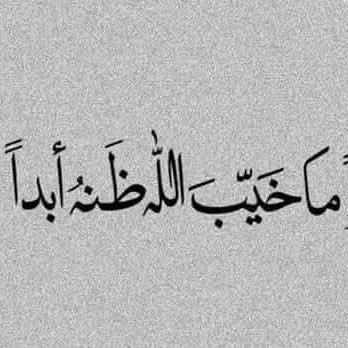 ما خَيَّبَ اللّٰه ظَنهُ أبداً